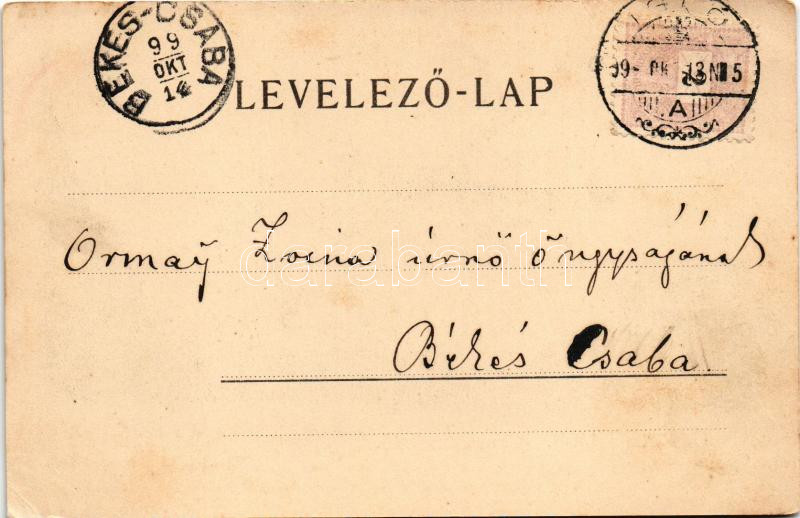 BÉKÉS-CSABA
99
OKT
14
LEVELEZŐ-LAP
99- OK 13 N 5
A
Ormay Zsina úrnő őngyságának
Békés Csaba
darabanth